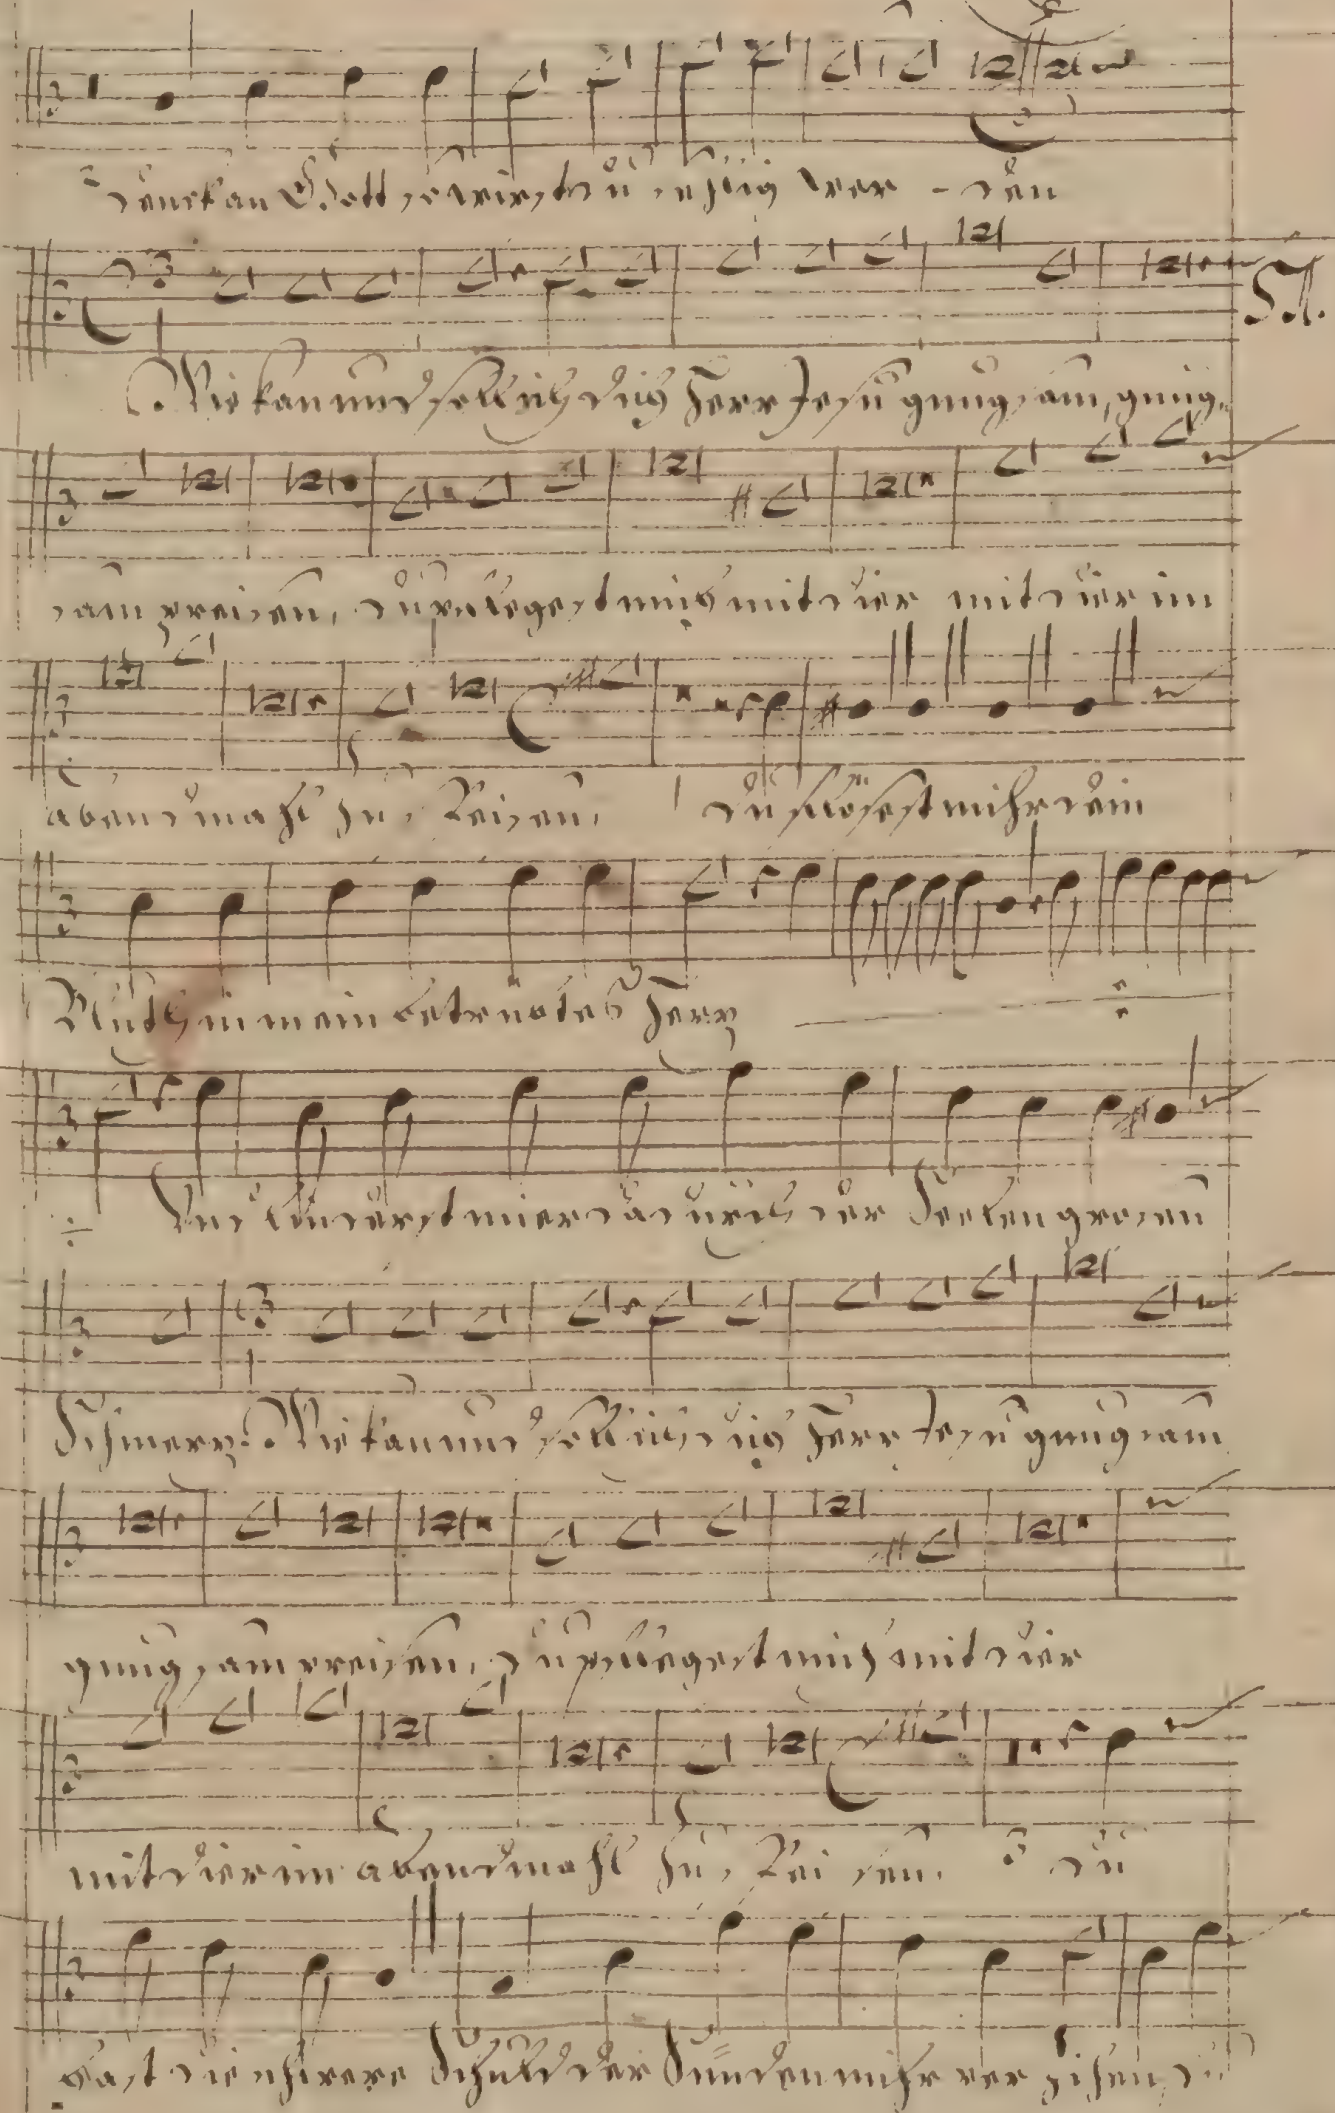 denck an Gott, so wirstu sehlig wer - den
Wie kan und soll ich dich Herr Jesu gnugsam, gnug,
sam preisen, du pflegest mich mit dier mit dier im
abendmahl zu, speisen, du flösest mihr dein
Bluth in mein betrübtes Hertz
Und linderst mier dadurch der Seelen grosen
Schmertz. Wie kan und soll ich dich Herr Jesu gnugsam
gnugsam preisen, du pflegest mich mit dier
mit dier im abendmahl zu, spei sen, du
hast die schwere Schuld der Sünden mihr ver zihen, du